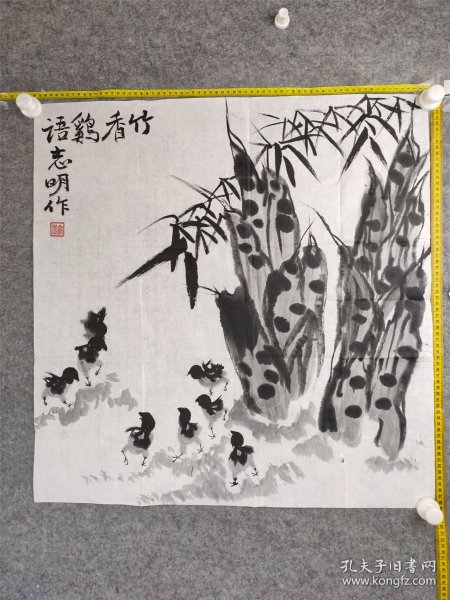 竹香鷄語
志明作
孔夫子旧书网
www.kongfz.com